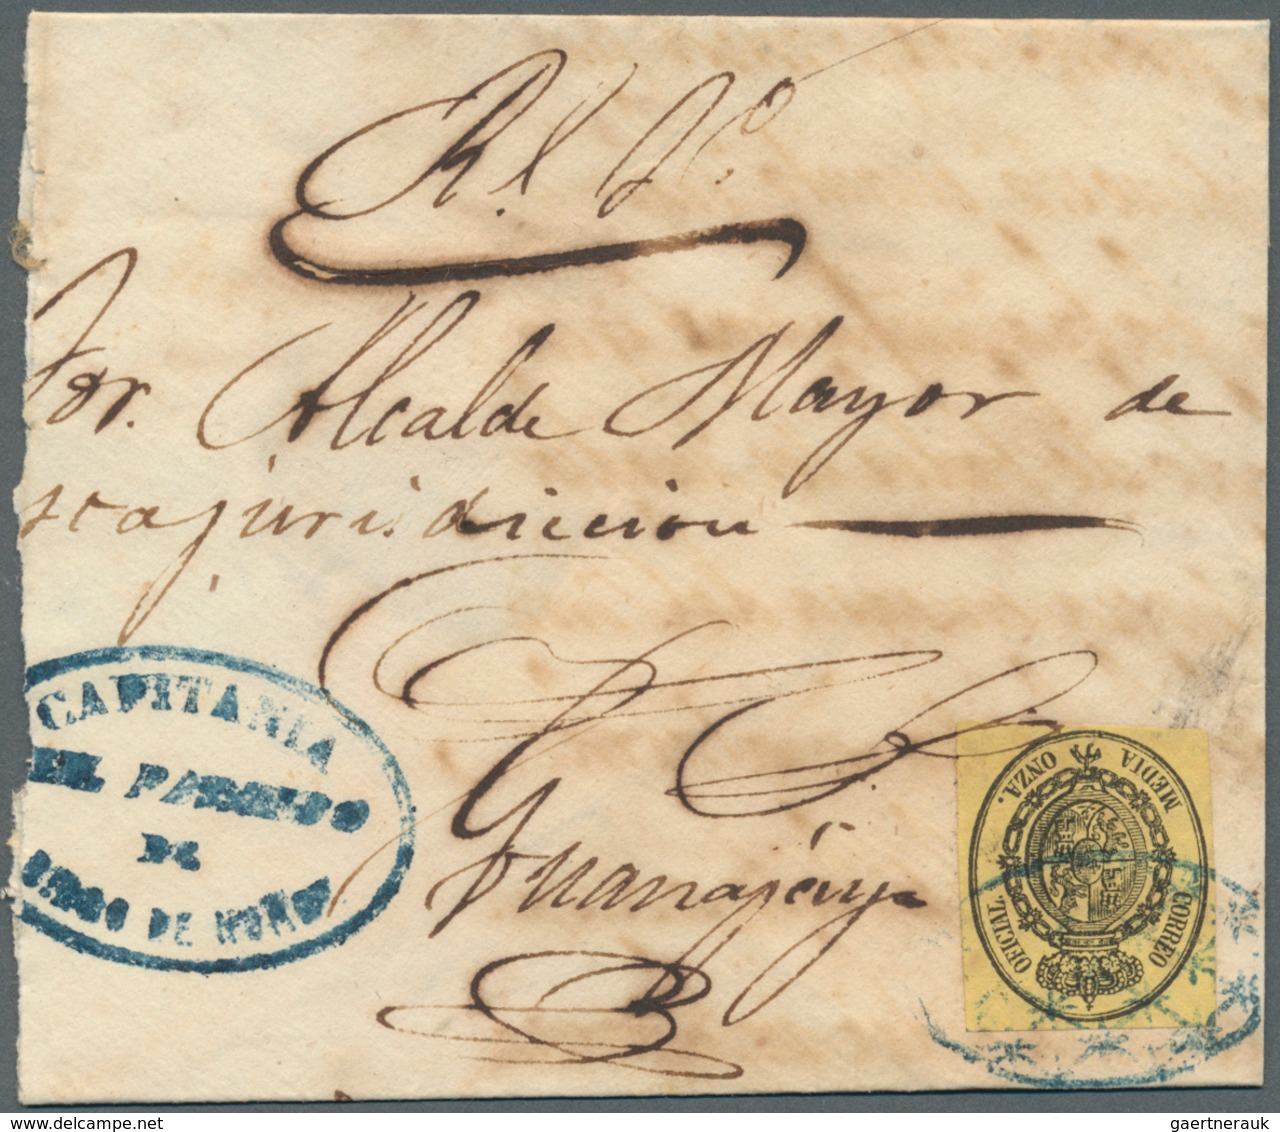 Rl. So.
Sor. Alcalde Mayor de
sta jurisdiccion
CAPITANIA
DEL PARTIDO
DE
DE NUÑEZ
Guanajay
CORREO OFICIAL
MEDIA ONZA.
gaertnerauk